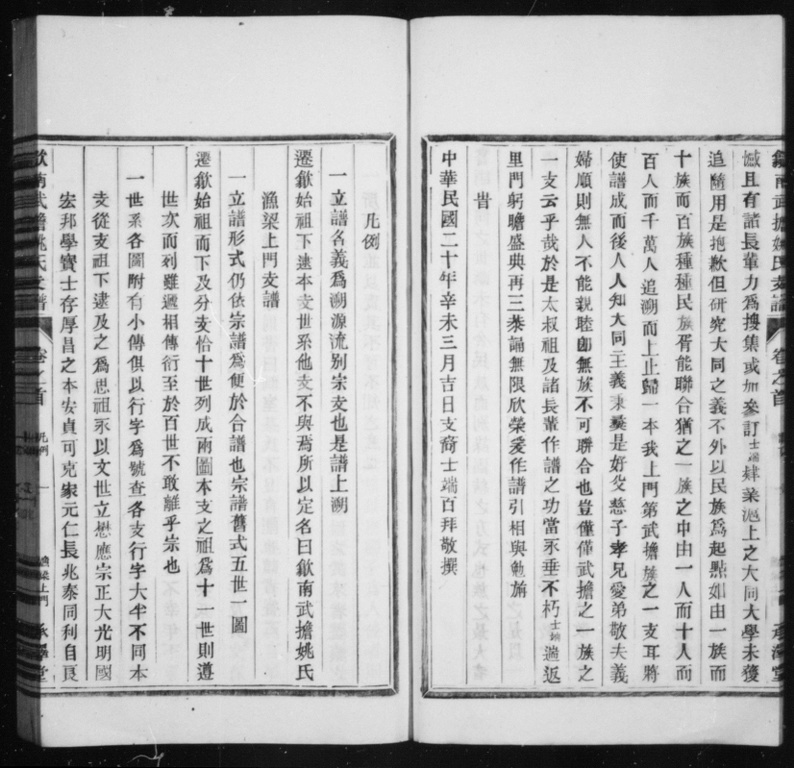 歙南武擔姚氏支譜 卷之首 承澤堂
憾且有諸長輩力爲搜集或加參訂士端肄業滬上之大同大學未獲
追隨用是抱歉但研究大同之義不外以民族爲起點如由一族而
十族而百族種種民族胥能聯合猶之一族之中由一人而十人而
百人而千萬人追溯而上止歸一本我上門第武擔族之一支耳將
使譜成而後人人知大同主義秉彝是好父慈子孝兄愛弟敬夫義
婦順則無人不能親睦卽無族不可聯合也豈僅僅武擔之一族之
一支云乎哉於是太叔祖及諸長輩作譜之功當永垂不朽士端遄返
里門躬瞻盛典再三泰誦無限欣榮爰作譜引相與勉旃
旹
中華民國二十年辛未三月吉日支裔士端百拜敬撰
凡例
一立譜名義爲溯源流别宗支也是譜上溯
遷歙始祖下逮本支世系他支不與焉所以定名曰歙南武擔姚氏
漁梁上門支譜
一立譜形式仍依宗譜爲便於合譜也宗譜舊式五世一圖
遷歙始祖而下及分支恰十世列成兩圖本支之祖爲十一世則遵
世次而列雖遞相傳衍至於百世不敢離乎宗也
一世系各圖附有小傳俱以行字爲號查各支行字大半不同本
支從支祖下逮及之爲思祖永以文世立懋應宗正大光明國
宏邦學賓士存厚昌之本安貞可克家元仁長兆泰同利自良
歙南武擔姚氏支譜 卷之首 凡例 一 漁梁上門 承澤堂